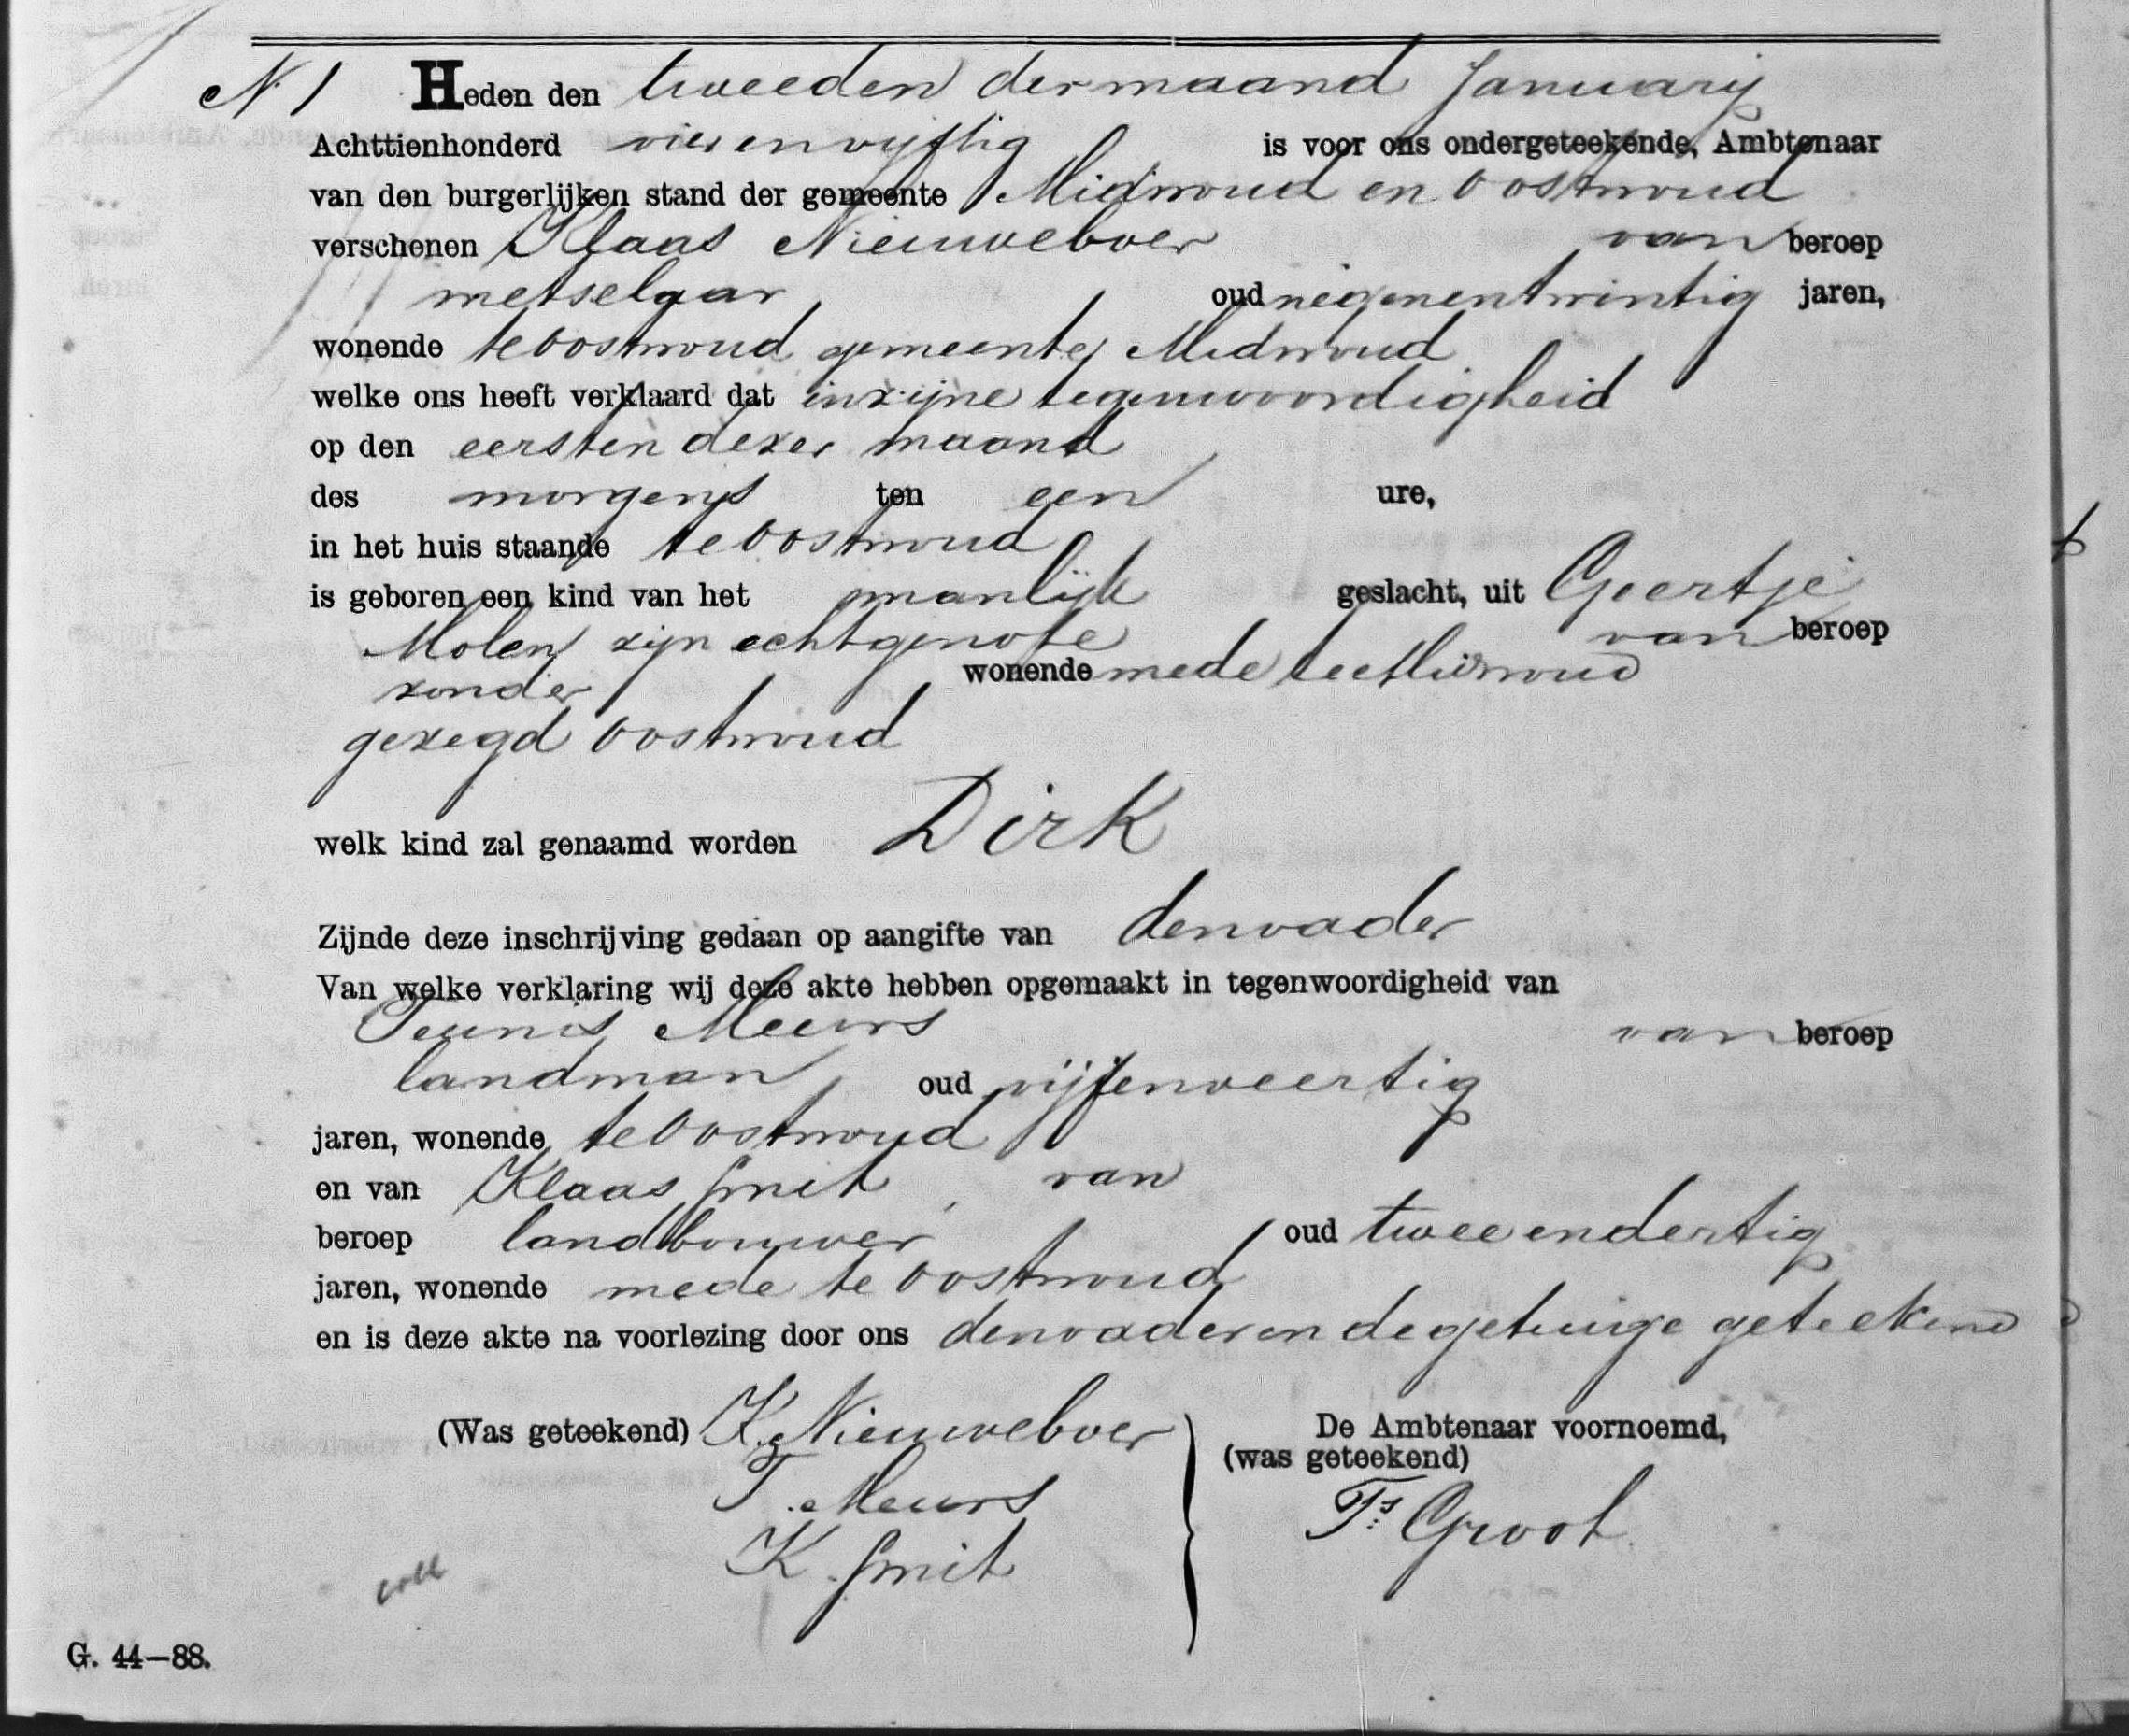 N. 1 Heden den tweeden der maand Januarij
Achttienhonderd vier en vijftig is voor ons ondergeteekende, Ambtenaar
van den burgerlijken stand der gemeente Midwoud en Oostwoud
verschenen Klaas Nieuweboer van beroep
metselaar, oud negenentwintig jaren,
wonende te Oostwoud gemeente Midwoud
welke ons heeft verklaard dat in zijne tegenwoordigheid
op den eersten dezer maand
des morgens ten een ure,
in het huis staande te Oostwoud
is geboren een kind van het manlijk geslacht, uit Geertje
Molen zijn echtgenote van beroep
zonder wonende mede te Midwoud
gezegd Oostwoud
welk kind zal genaamd worden Dirk
Zijnde deze inschrijving gedaan op aangifte van den vader
Van welke verklaring wij deze akte hebben opgemaakt in tegenwoordigheid van
Teunis Meurs van beroep
landman, oud vijfenveertig
jaren, wonende te Oostwoud
en van Klaas Smit, van
beroep landbouwer oud twee en dertig
jaren, wonende mede te Oostwoud
en is deze akte na voorlezing door ons den vader en de getuige geteekend
(Was geteekend) K. Nieuweboer De Ambtenaar voornoemd,
(was geteekend)
T. Meurs Ts. Groot
K. Smit
coll
G. 44—88.